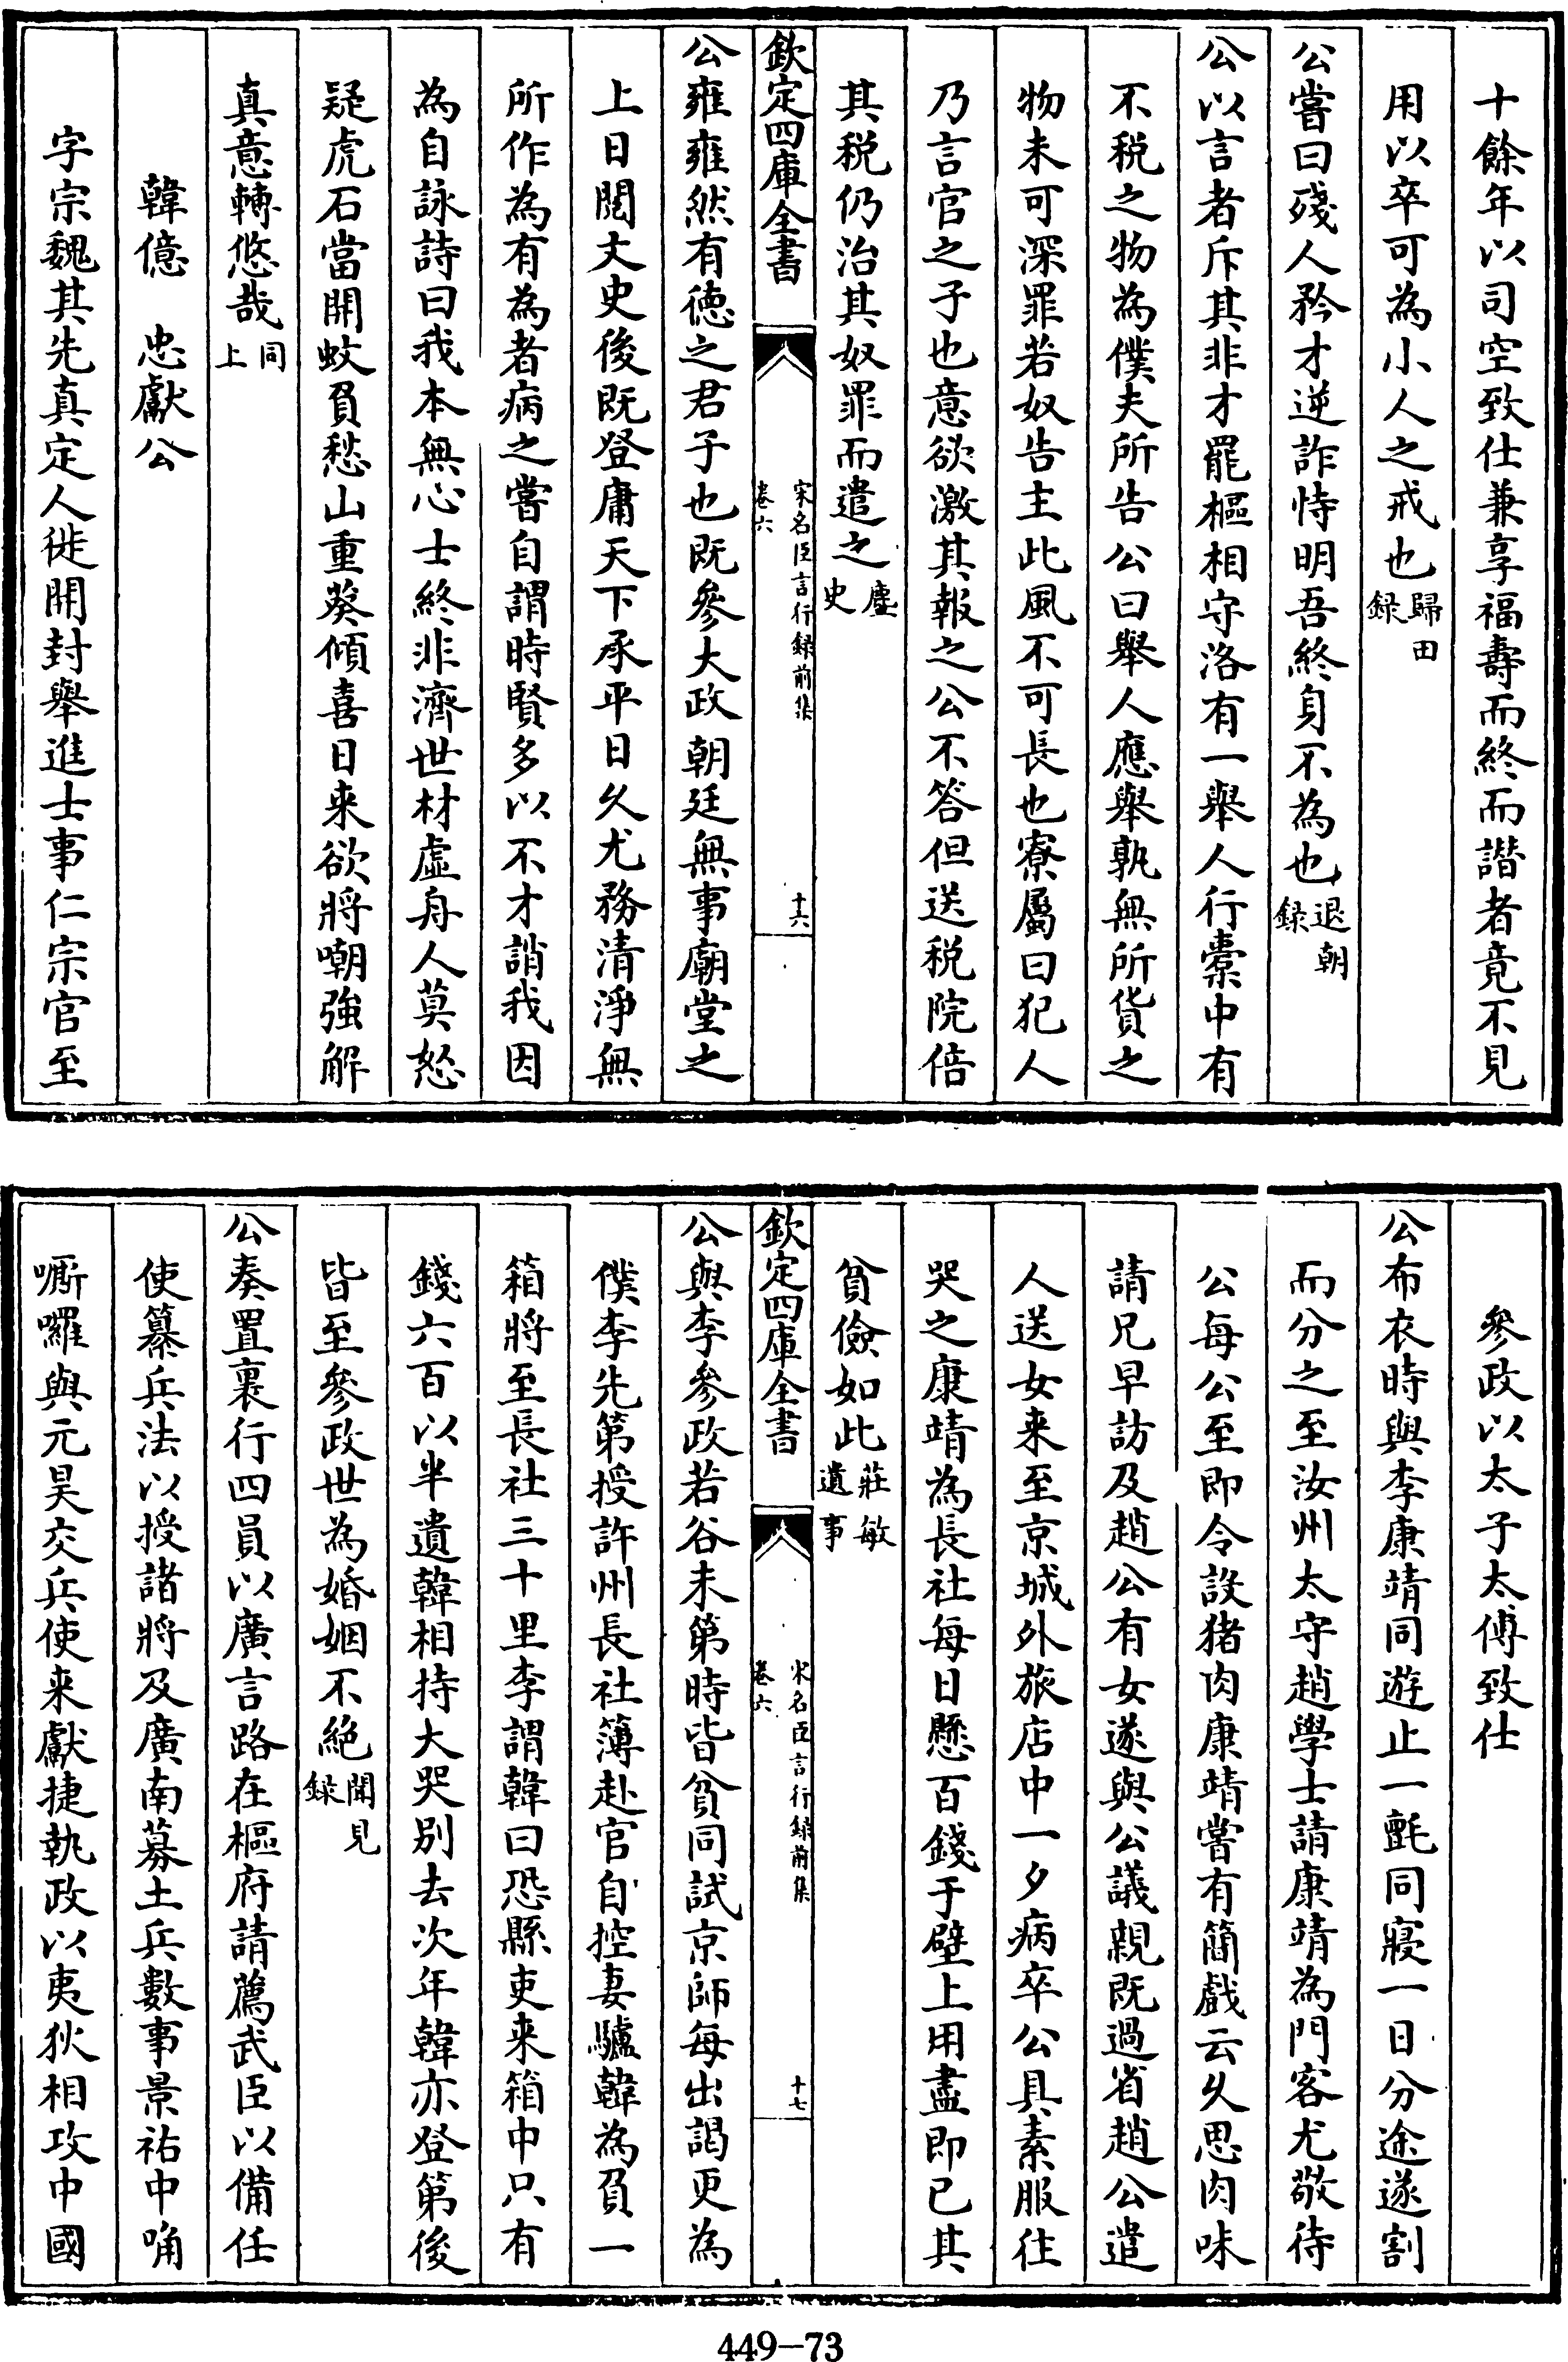 十餘年以司空致仕兼享福壽而終而譛者竟不見
用以卒可為小人之戒也歸田錄
公嘗曰殘人矜才逆詐恃明吾終身不為也退朝錄
公以言者斥其非才罷樞相守洛有一舉人行橐中有
不税之物為僕夫所告公曰舉人應舉孰無所貨之
物未可深罪若奴告主此風不可長也寮屬曰犯人
乃言官之子也意欲激其報之公不答但送税院倍
其税仍治其奴罪而遣之麈史
欽定四庫全書
宋名臣言行録前集
卷六
十六
公雍雍然有德之君子也既參大政朝廷無事廟堂之
上日閱文史後既登庸天下承平日久尤務清淨無
所作為有為者病之嘗自謂時賢多以不才誚我因
為自詠詩曰我本無心士終非濟世材虛舟人莫怒
疑虎石當開蚊負愁山重葵傾喜日来欲將嘲強解
真意轉悠哉同上
韓億　忠獻公
字宗魏其先真定人徙開封舉進士事仁宗官至
參政以太子太傅致仕
公布衣時與李康靖同遊止一氊同寢一日分途遂割
而分之至汝州太守趙學士請康靖為門客尤敬待
公每公至即令設猪肉康靖嘗有簡戲云久思肉味
請兄早訪及趙公有女遂與公議親既過省趙公遣
人送女来至京城外旅店中一夕病卒公具素服往
哭之康靖為長社每日懸百錢于壁上用盡即已其
貧儉如此莊敏遺事
欽定四庫全書
宋名臣言行録前集
卷六
十七
公與李參政若谷未第時皆貧同試京師每出謁更為
僕李先第授許州長社簿赴官自控妻驢韓為負一
箱將至長社三十里李謂韓曰恐縣吏来箱中只有
錢六百以半遺韓相持大哭別去次年韓亦登第後
皆至參政世為婚姻不絶聞見録
公奏置裏行四員以廣言路在樞府請薦武臣以備任
使纂兵法以授諸將及廣南募土兵數事景祐中唃
嘶囉與元昊交兵使来獻捷執政以夷狄相攻中國
449-73